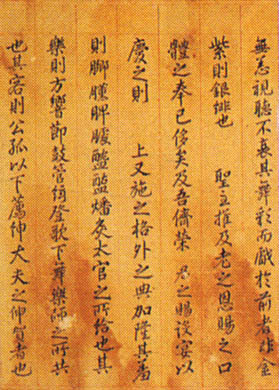 無恙視聽不衰其舞彩而戲於前者非金
紫則銀緋也 聖主推及老之恩賜之口
體之奉已侈矣及吾儕榮 君之賜設宴以
慶之則 上又施之格外之典加隆其羞
則脾臄醓醢燔炙太官之所給也其
樂則方響節鼓登歌下舞樂師之所共
也其客則公孤以下薦紳大夫之伸賀者也